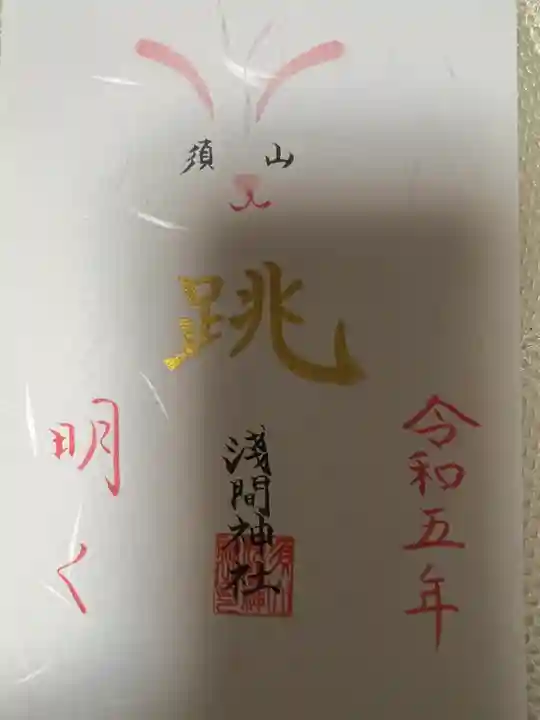 須山
跳
浅間神社
令和五年
明く